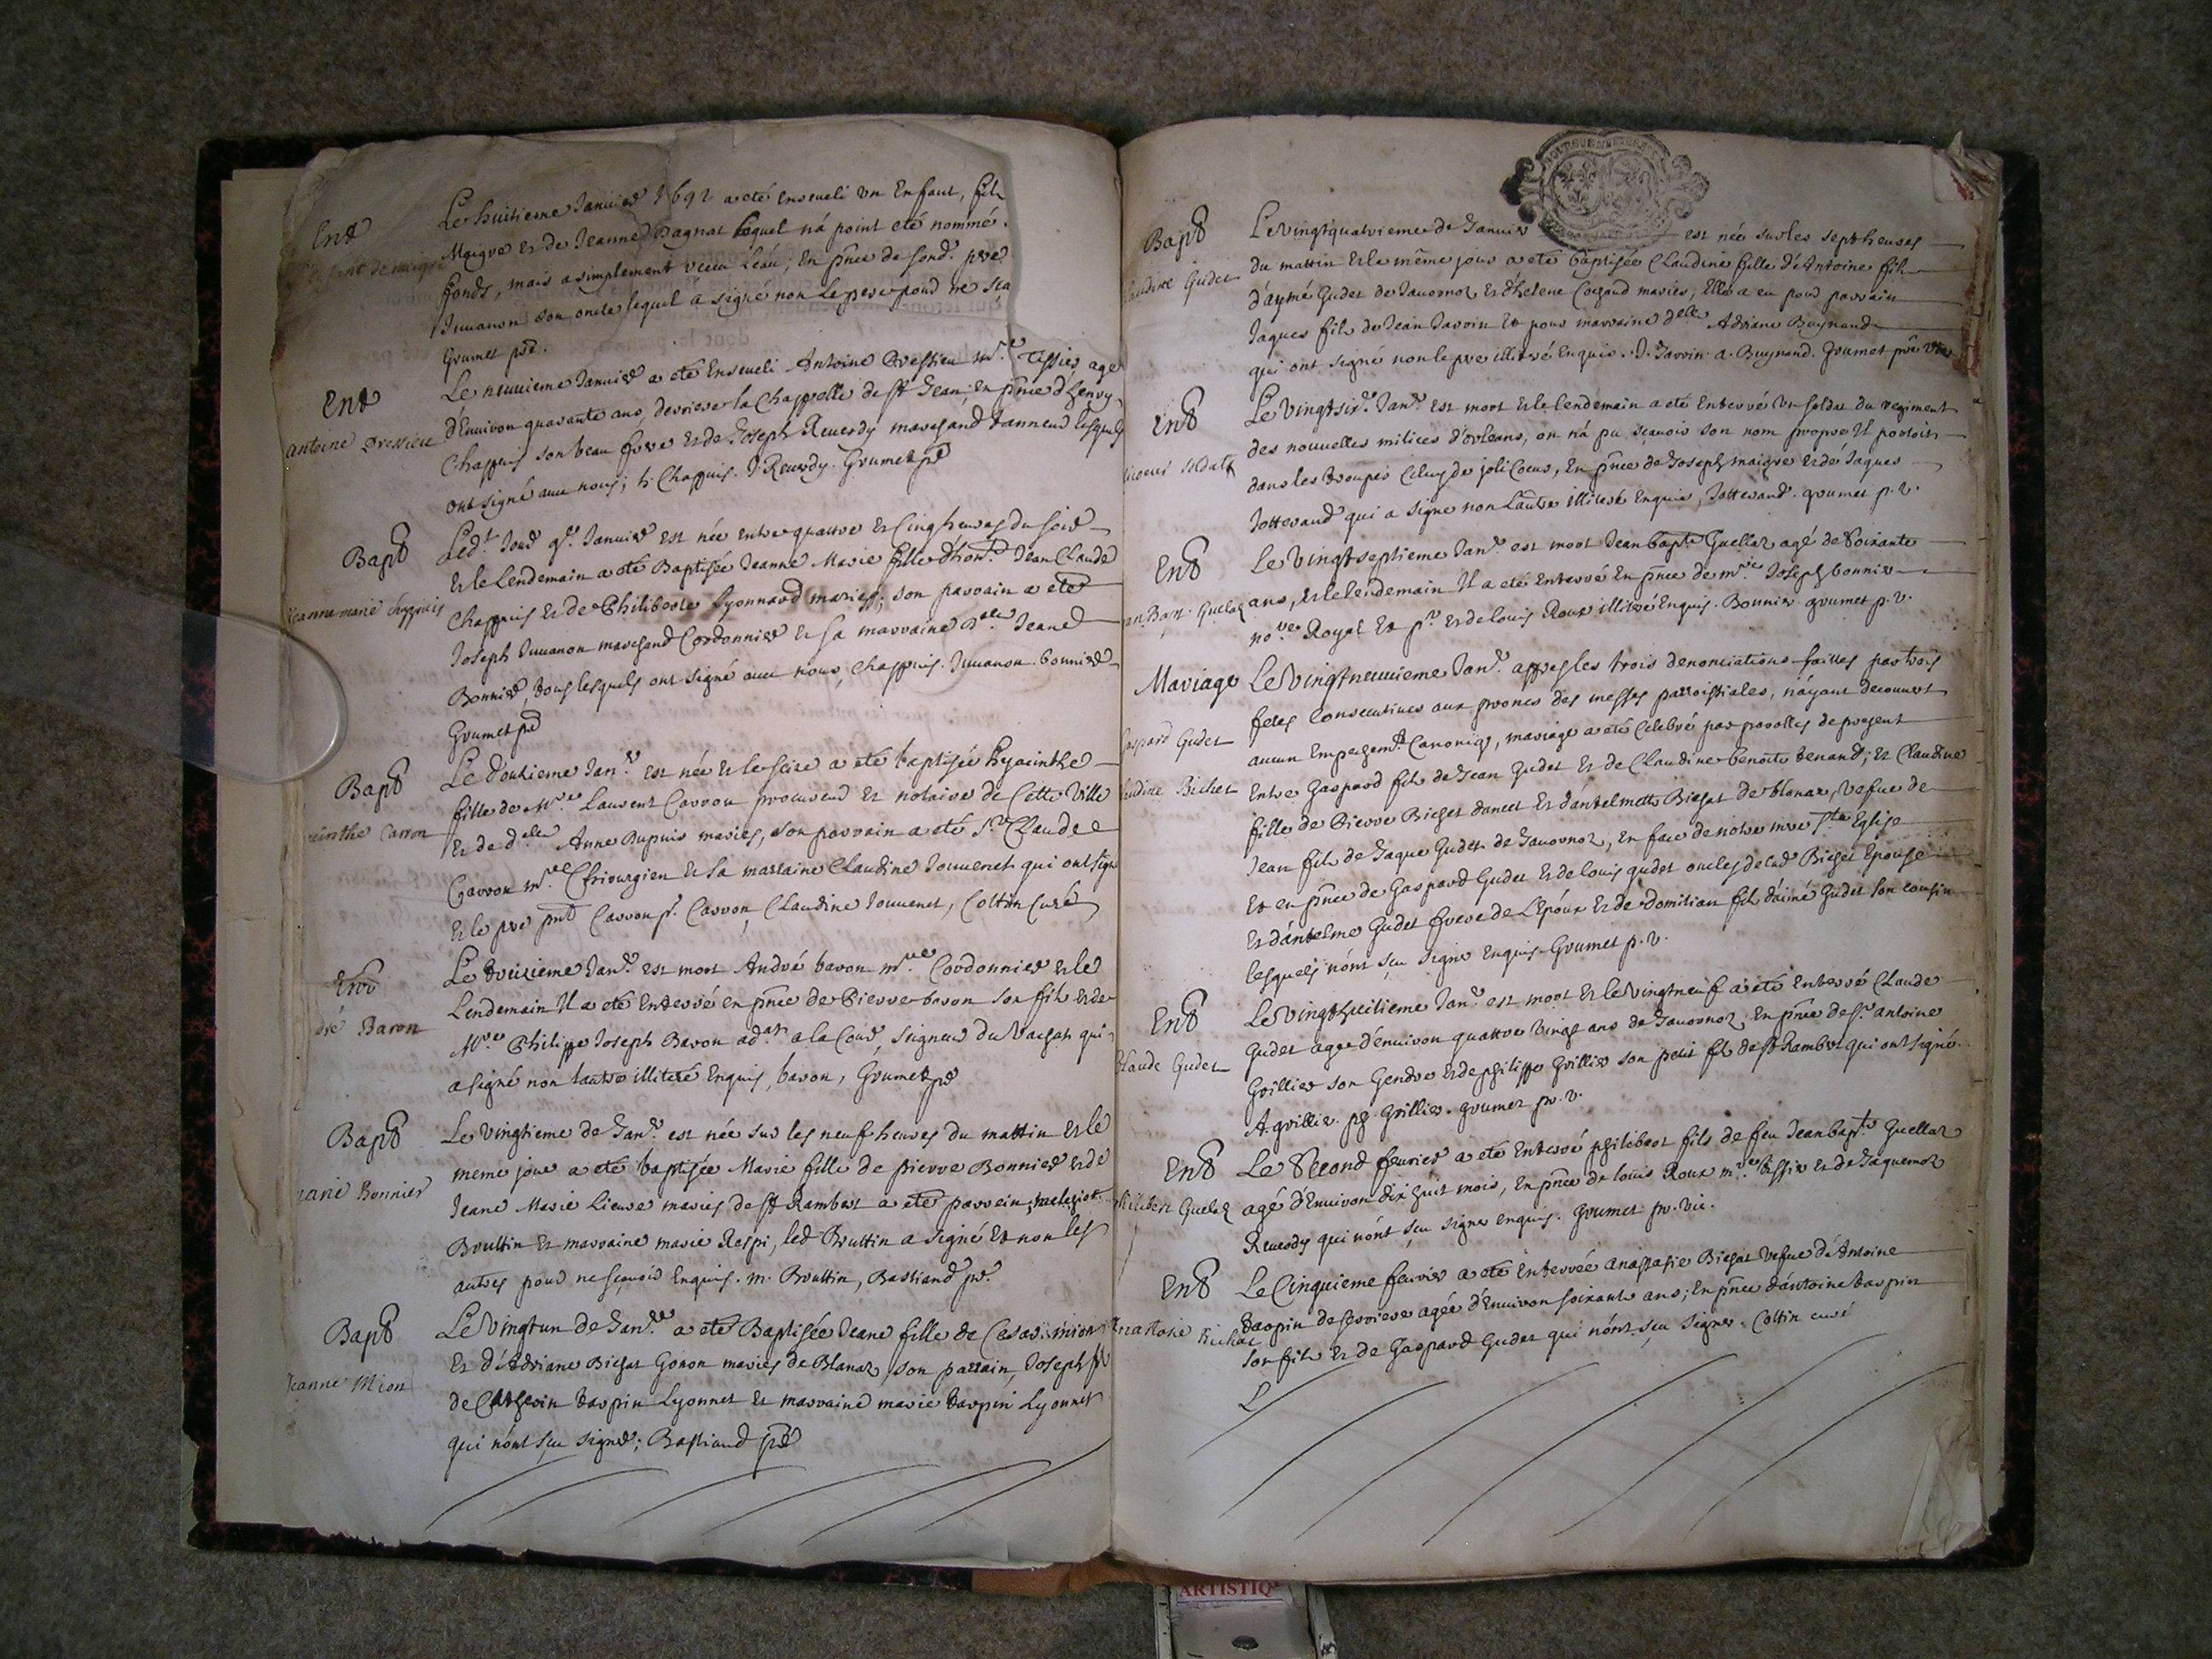 Ent
Le huitieme Januier 1692 a eté enseueli un Enfant, fils
Maigre et de Jeanne Bagnat lequel n'a point eté nommé
fonds, mais a simplement receu l'eau; En pnce de
Juuanon son oncle lequel a signé non le pere pour ne sca
Grumet pre.
Ent
antoine Dressieu
Le neuuieme Januier a eté Enseueli Antoine Dressieu mre Tissier, agé
d'Enuiron quarante ans, derriere la Chappelle de st Jean, en pnce d'henry
Chappuis son beau frere et de Joseph Reuerdy marchand tanneur lesquels
ont signé auec nous; h. Chappuis. J. Reuerdy. Grumet pre
Bapt
jeanne marie chappuis
Ledt Jour 9e. Januier est née entre quattre et Cinq heures du soir
et le Lendemain a eté Baptisée Jeanne Marie fille d'honble Jean Claude
Chappuis et de Philiberte Lyonnard mariés; son parrain a eté
Joseph Juuanon marchand Cordonnier et sa marraine Delle Jeane
Bonnier, tous lesquels ont signé auec nous, Chappuis. Juuanon. bonnier
Grumet pre
Bapt
cinthe Carron
Le douzieme Janr. est née et le seize a eté baptisée hyacinthe
fille de Mre Laurent Carron procureur et notaire de Cette Ville
et de delle Anne Dupuis mariés, son parrain a eté Sr Claude
Carron mre Chirurgien et sa marraine Claudine Jouuenet qui ont signé
et le pere pnt Carron p. Carron, Claudine Jouuenet, Cottin Curé
Ent
dré Baron
Le treizieme Janr. est mort André baron mre Cordonnier et le
Lendemain Il a eté Enterré en pnce de Pierre baron son fils et de
Mre Philippe Joseph Baron adat a la Cour, seigneur du Vachat qui
a signé non l'autre illiteré Enquis, baron, Grumet pre
Bapt
marie Bonnier
Le vingtieme de Janr. est née sur les neuf heures du mattin et le
meme jour a eté baptisée Marie fille de pierre Bonnier et de
Jeane Marie Lieure mariés de st Rambert a eté parrein, melchiot
Bruttin et marraine marie Respi, led Bruttin a signé et non les
autres pour ne sçauoir Enquis. m. Bruttin, Bastiand pre.
Bapt
Jeanne Mion
Le Vingtun de Janr. a eté Baptisée Jeane fille de Cesar mion
et d'Adriane Bichat Gonon mariés de Blanaz, son parrain, Joseph fils
de Anthoin tarpin Lyonnet et marraine marie tarpin Lyonnet
qui n'ont sçu signer; Bastiand pre
Bapt
laudine Gudet
Le Vingtquatrieme de Januier est née sur les sept heures
du mattin et le même jour a eté baptisée Claudine fille d'Antoine fils
d'aymé Gudet de Jauornoz et d'helene Cozand mariés; Elle a eu pour parrain
Jaques fils de Jean Jarrin et pour marraine delle Adriane Buynand
qui ont signé non le pere illiteré enquis. J. Jarrin. a. Buynand. Grumet pre Vic
Ent
licoeur soldat
Le Vingtsixe. Janr. est mort et le lendemain a eté Enterré Un soldat du regiment
des nouuelles milices d'orleans, on n'a pu sçauoir son nom propre Il portoit
dans les troupes Celuy de joli Coeur, En pnce de Joseph maigre et de Jaques
Jotterand qui a signé non l'autre illiteré Enquis, Jotterand. grumet p. v.
Ent
an Bapt. Guelaz
Le Vingtseptieme Janr. est mort Jean bapte Guellaz agé de Soixante
ans, et le lendemain Il a eté Enterré En pnce de mre Joseph bonnier
nore Royal et pr. et de louis Roux illiteré Enquis. Bonnier. grumet p. v.
Mariage
Gaspard Gudet
laudine Bichet
Le Vingtneuuieme Janr. appres les trois denonciations faittes par trois
festes Consecutiues aux prones des messes parroissiales, n'ayant decouuert
aucun Empechemt. Canoniqe, mariage a eté Celebré par parolles de present
Entre Gaspard fils de Jean Gudet et de Claudine benoite tenand; Et Claudine
fille de Pierre Bichet dances et d'antelmette Bichat de blanaz, Vefue de
Jean fils de Jaque Gudet de Jauornoz, en face de notre mere Ste Eglise
et en pnce de Gaspard Gudet et de louis gudet oncles de lad Bichet Epouse
et d'antelme Gudet frere de L'Epoux et de domitian fils d'aimé Gudet son cousin
lesquels n'ont sçu signer Enquis. Grumet p. v.
Ent
Claude Gudet
Le Vingthuitieme Janr. est mort et le Vingtneuf a eté Enterré Claude
Gudet agé d'enuiron quattre vingt ans de Jauornoz. En pnce de sr. antoine
Grillier son Gendre et de philippe Grillier son petit fils de st Rambert qui ont signé
A. grillier. ph. Grillier. grumet pr. v.
Ent
Philibert Guelaz
Le Second feurier a eté Enterré philibert fils de feu Jean bapte Guellaz
agé d'Enuiron dix huit mois, En pnce de louis Roux mre tissier et de Jaquemoz
Reuerdy qui n'ont sçu signer enquis. Grumet pr. vic.
Ent
Anastasie Bichat
Le Cinquieme feurier a eté Enterrée anastasie Bichat Vefue d'Antoine
tarpin de serrieres agée d'Enuiron soixante ans; En pnce d'antoine tarpin
son fils et de Gaspard Gudet qui n'ont sçu signer. Cottin curé
ARTISTIQ